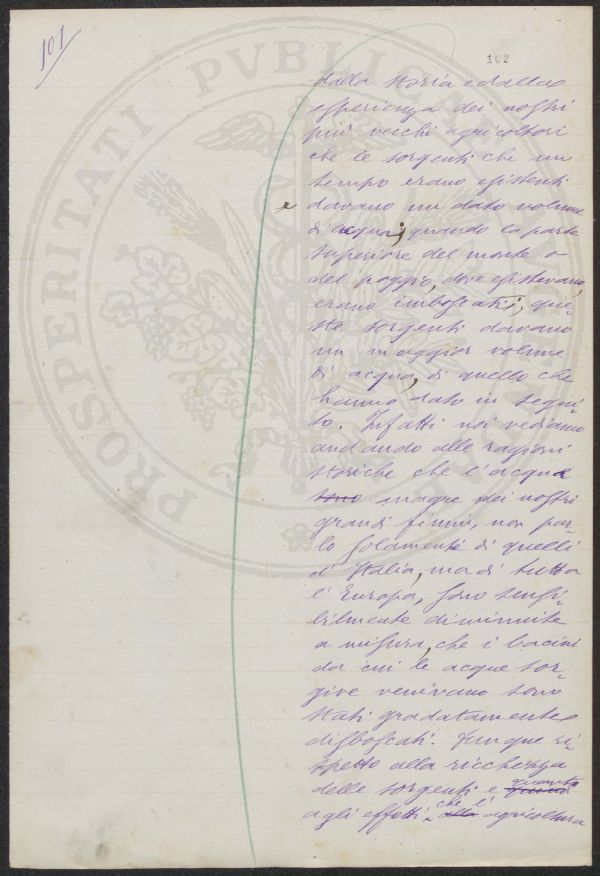 101
102
dalla storia e dalla
esperienza dei nostri
più vecchi agricoltori
che le sorgenti che un
tempo erano esistenti
e davano un dato volume
di acqua; quando la parte
superiore del monte o
del poggio, dove esistevano,
erano imboscati, que-
ste sorgenti davano
un maggior volume
di acqua, di quello che
hanno dato in segui-
to. Infatti noi vediamo
andando alle ragioni
storiche che l'acqua
sono magre dei nostri
grandi fiumi, non par-
lo solamente di quelli
d'Italia, ma di tutta
l'Europa, sono sensi-
bilmente diminuite
a misura, che i bacini
da cui le acque sor-
give venivano sono
stati gradatamente
disboscati. Dunque ri-
spetto alla ricchezza
delle sorgenti e quanto
agli effetti che l' alla agricoltura
PROSPERITATI PVBLICAE